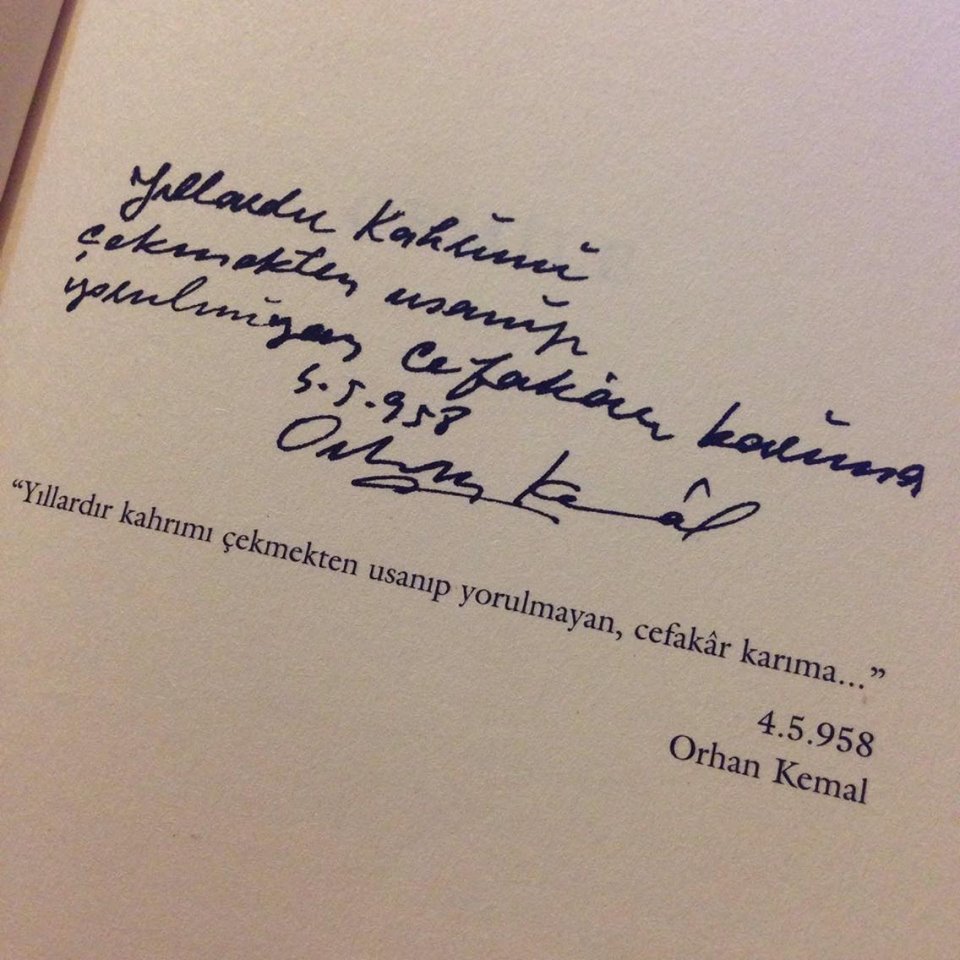 Yıllardır Kahrımı
çekmekten usanıp
yorulmıyan cefakâr karıma
5.5.958
Orhan Kemâl
“Yıllardır kahrımı çekmekten usanıp yorulmayan, cefakâr karıma...”
4.5.958
Orhan Kemal